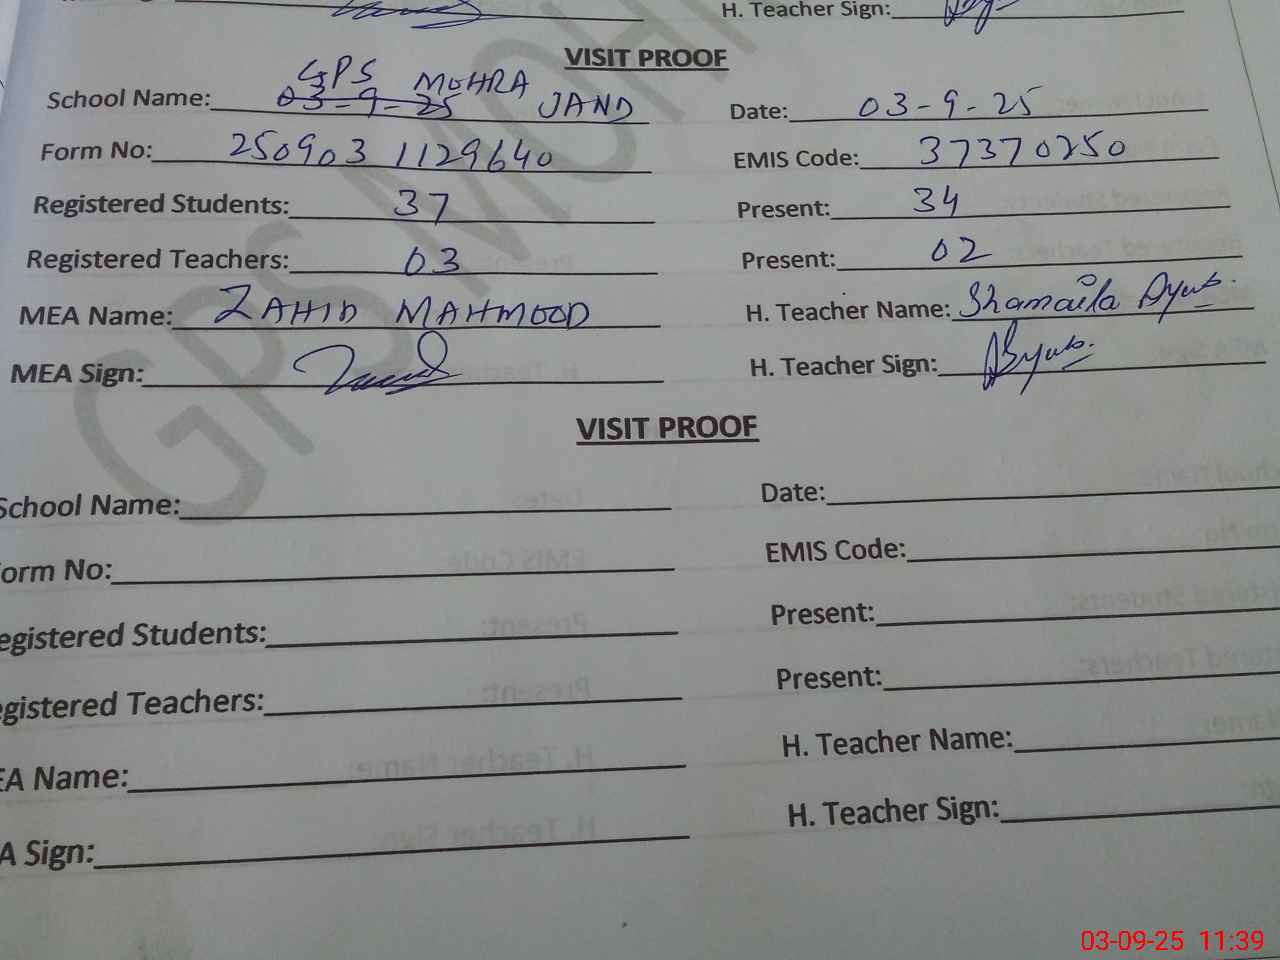 H. Teacher Sign:
VISIT PROOF
School Name: GPS MOHRA JAND 03-9-25 Date: 03-9-25
Form No: 250903 1129640 EMIS Code: 37370250
Registered Students: 37 Present: 34
Registered Teachers: 03 Present: 02
MEA Name: ZAHID MAHMOOD H. Teacher Name: Shamaila Ayub.
MEA Sign: H. Teacher Sign: Ayub.
VISIT PROOF
School Name: Date:
orm No: EMIS Code:
egistered Students: Present:
egistered Teachers: Present:
EA Name: H. Teacher Name:
A Sign: H. Teacher Sign:
GPS MOH
03-09-25 11:39